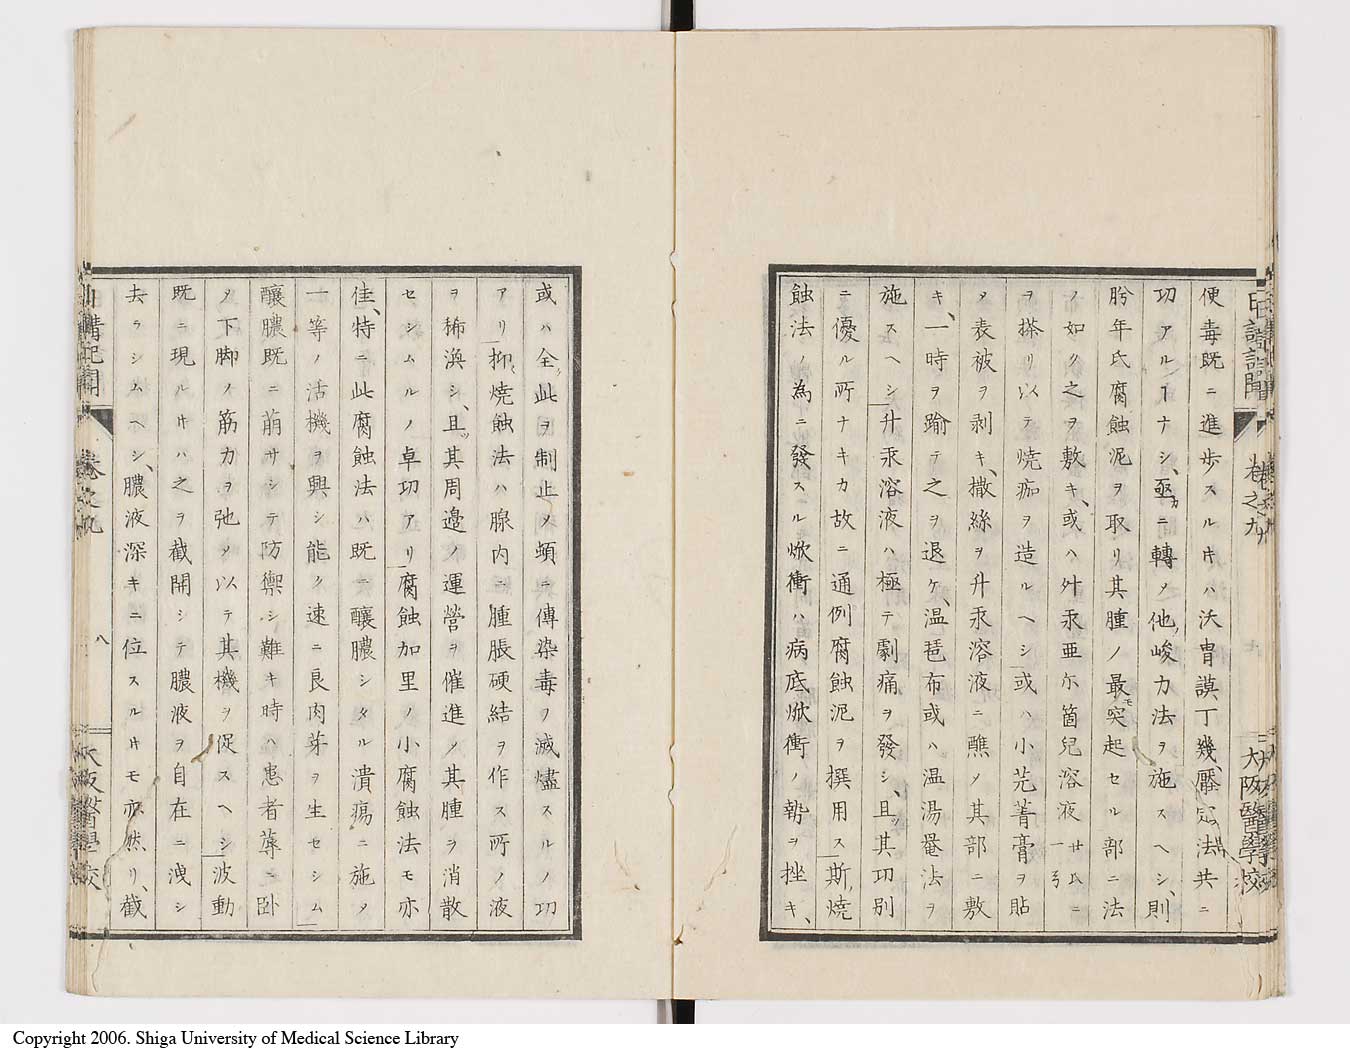 日講記聞
卷之九
大阪醫學校
便毒既ニ進歩スルキハ沃胄謨丁幾、壓定法共ニ
功アルヿナシ、亟カニ轉〆他ノ峻力法ヲ施スヘシ、則
肹年氏腐蝕泥ヲ取リ其腫ノ最モ突起セル部ニ法
ノ如ク之ヲ敷キ、或ハ舛汞亜尓箇兒溶液
ヲ搽リ以テ焼痂ヲ造ルヘシ或ハ小芫菁膏ヲ貼
〆表被ヲ剥キ、撒絲ヲ升汞溶液ニ醮〆其部ニ敷
キ、一時ヲ踰テ之ヲ退ケ、温琶布或ハ温湯罨法ヲ
施スヘシ升汞溶液ハ極テ劇痛ヲ發シ、且ツ其功別
ニ優ル所ナキカ故ニ通例腐蝕泥ヲ撰用ス斯ノ燒
蝕法ノ為ニ發スル焮衝ハ病底焮衝ノ勢ヲ挫キ、
或ハ全ク此ヲ制止〆頓ニ傳染毒ヲ滅燼スルノ功
アリ抑燒蝕法ハ腺内ニ腫脹硬結ヲ作ス所ノ液
ヲ稀渙シ、且ツ其周邉ノ運營ヲ催進〆其腫ヲ消散
セシムルノ卓功アリ腐蝕加里ノ小腐蝕法モ亦
佳、特ニ此腐蝕法ハ既ニ釀膿シタル潰瘍ニ施〆
一等ノ活機ヲ興シ能ク速ニ良肉芽ヲ生セシム
釀膿既ニ萠サシテ防禦シ難キ時ハ患者蓐ニ卧
〆下脚ノ筋力ヲ弛〆以テ其機ヲ促スヘシ波動
既ニ現ルキハ之ヲ截開シテ膿液ヲ自在ニ洩シ
去ラシムヘシ、膿液深キニ位スルキモ亦然リ、截
日講記聞
卷之九
八
大阪醫學校
Copyright 2006. Shiga University of Medical Science Library